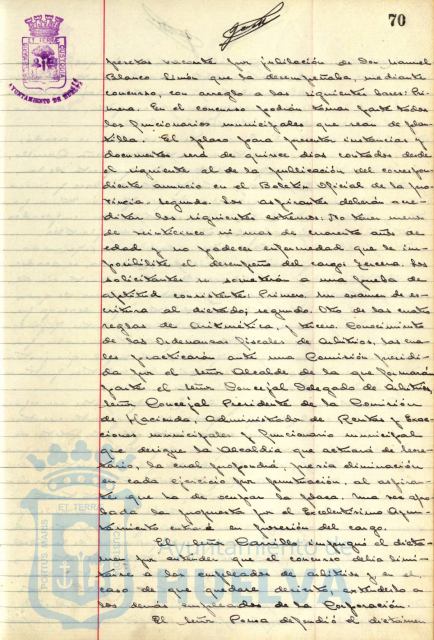 70
AYUNTAMIENTO DE HUELVA
pectos vacante por jubilación de Don Manuel
Blanco Limón que la desempeñaba, mediante
concurso, con arreglo a las siguientes bases: Pri-
mera. En el concurso podrán tomar parte todos
los funcionarios municipales que sean de plan-
tilla. El plazo para presentar instancias y
documentos será de quince días contados desde
el siguiente al de la publicación del correspon-
diente anuncio en el Boletín Oficial de la pro-
vincia. Segundo. Los aspirantes deberán acre-
ditar los siguientes extremos: No tener menos
de veinticinco ni mas de cuarenta años de
edad y no padecer enfermedad que le im-
posibilite el desempeño del cargo; Tercera. Los
solicitantes se someterán a una prueba de
aptitud consistente: Primero. Un examen de es-
critura al dictado; segundo. Otro de las cuatro
reglas de Aritmética, y tercero. Conocimiento
de las Ordenanzas Fiscales de Arbitrios, las cua-
les practicarán ante una Comisión presidi-
da por el señor Alcalde de la que formarán
parte el señor Concejal Delegado de Arbitrios,
señor Concejal Presidente de la Comisión
de Hacienda, Administrador de Rentas y Exac-
ciones municipales y funcionario municipal
que designe la Alcaldía que actuará de Secre-
tario, la cual propondrá, previa eliminación
en cada ejercicio por puntuación, al aspiran-
te que ha de ocupar la plaza. Una vez apro-
bada la propuesta por el Excelentísimo Ayun-
tamiento entrará en posesión del cargo.
El señor Carrillo impugnó el dictá-
men por entender que el concurso debía limi-
tarse a los empleados de arbitrios y en el
caso de que quedare desierto, extenderlo a
los demás empleados de la Corporación.
El señor Poma defendió el dictámen
PORTUS MARIS ET TERRAE CUSTODIA
Ayuntamiento de
HUELVA